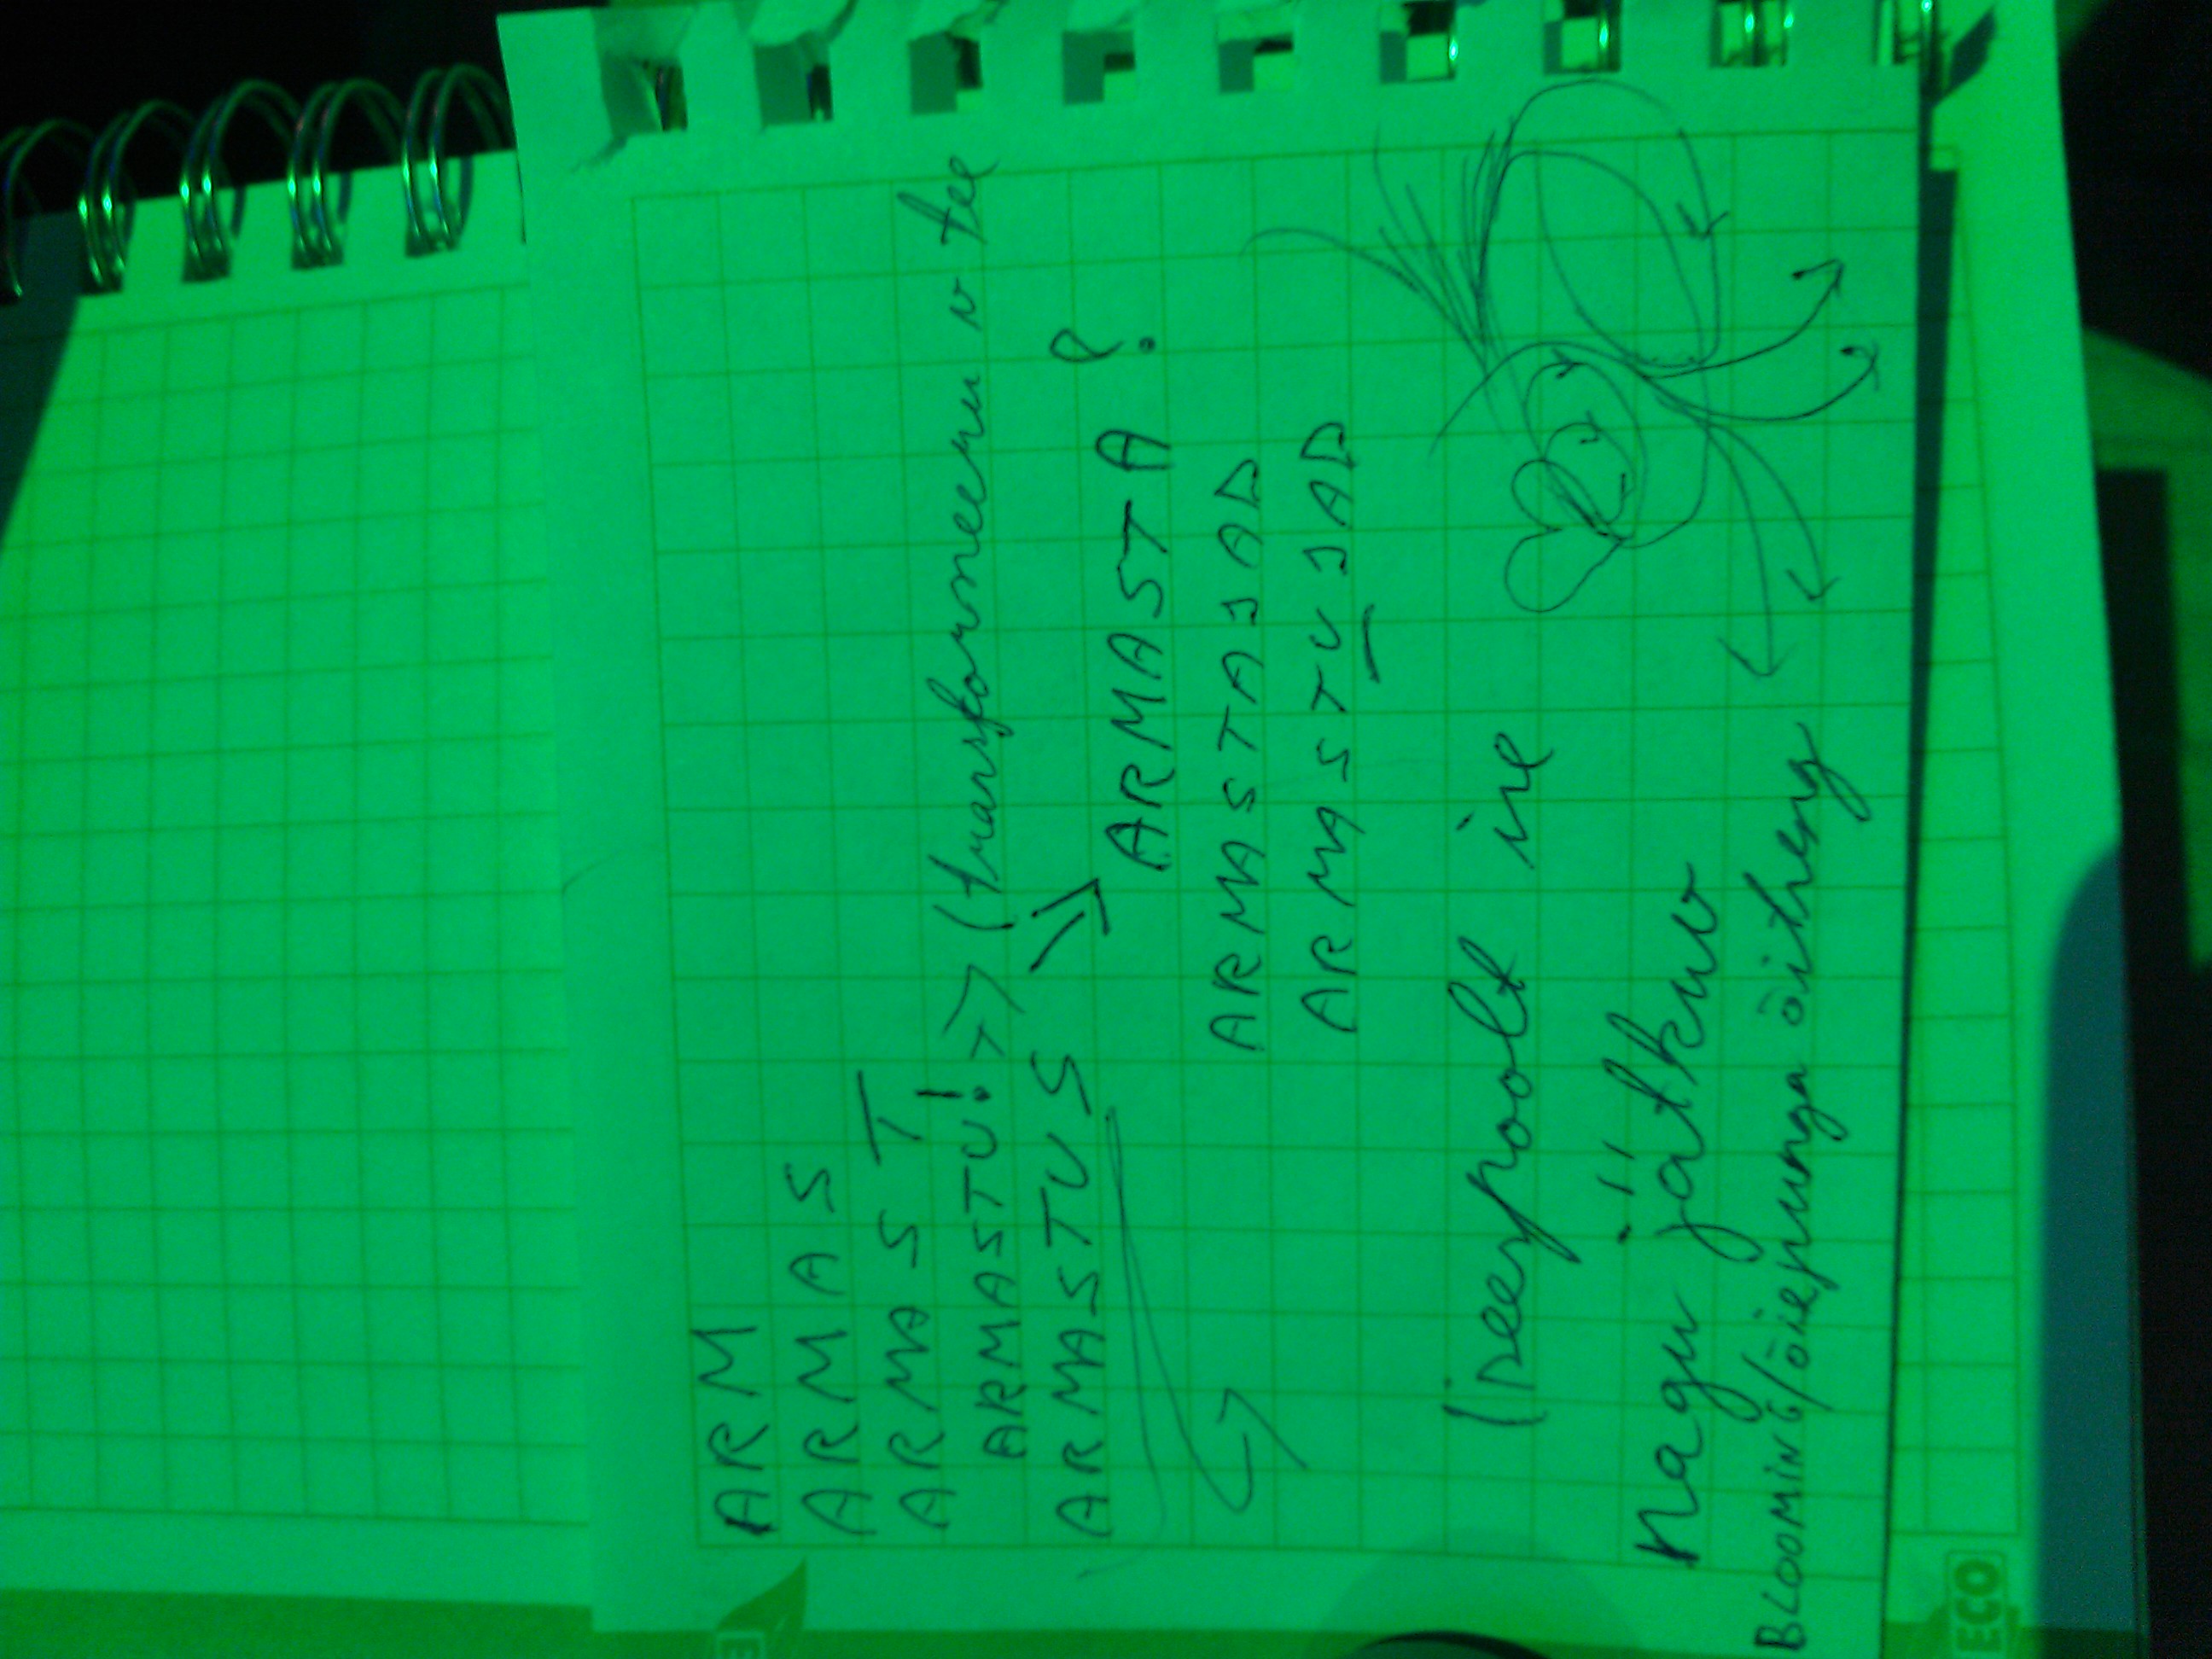 ARM
ARMAS
ARMAST
ARMASTU! >> (transformeeru v tee
ARMASTUS >> ARMASTA?
ARMASTAJAD
ARMASTUJAD
(iseenpoolt ise
nagu jätkuv
BLOOMING/õiepunga õitseng
ECO